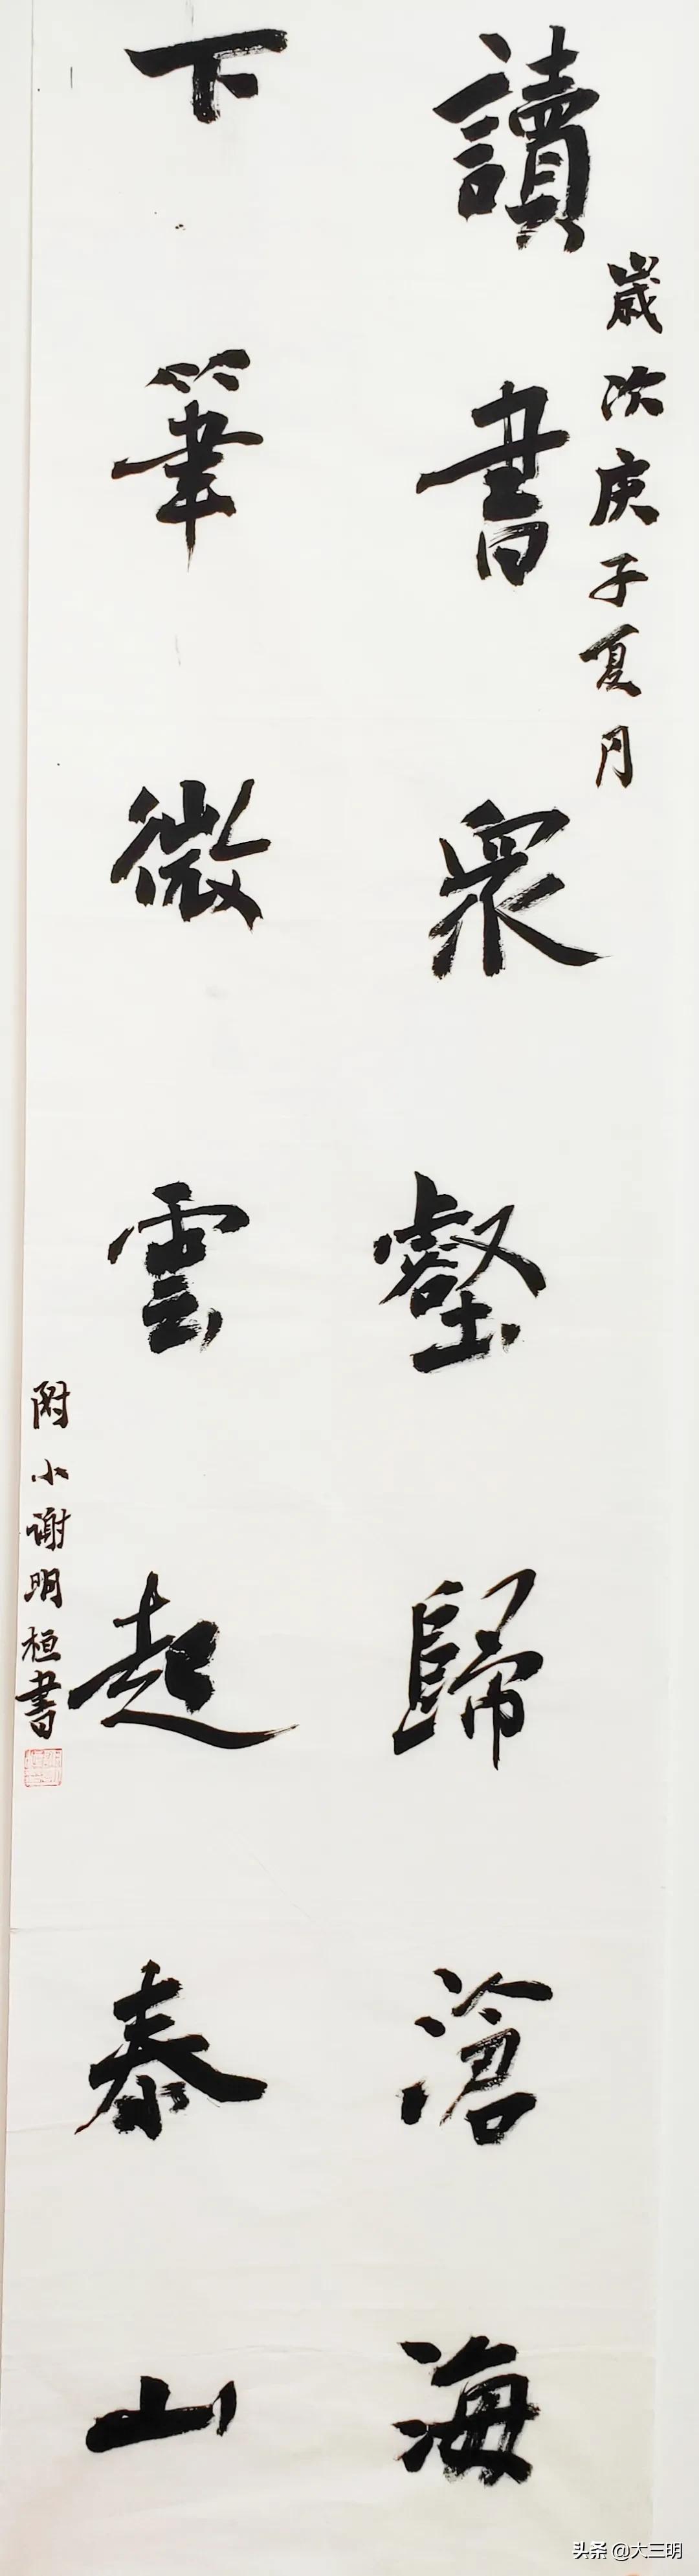 歲次庚子夏月
讀書眾壑歸滄海
下筆微雲起泰山
附小謝明桓書
头条 @大三明